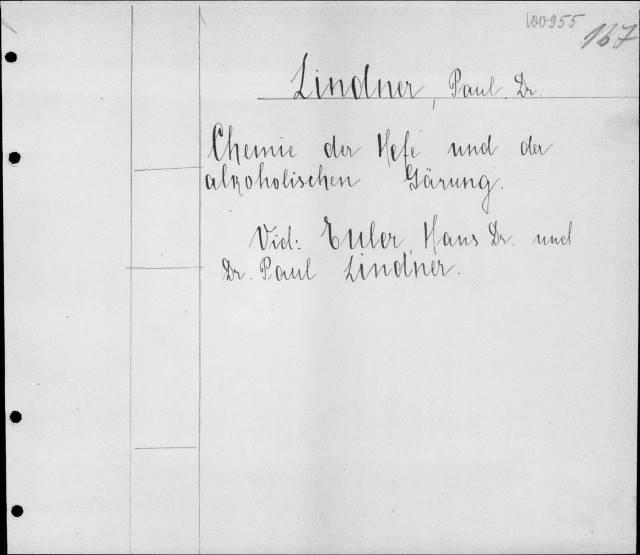 100955
167
Lindner, Paul. Dr.
Chemie der Hefe und der
alkoholischen Gärung.
Vid: Euler, Hans Dr. und
Dr. Paul Lindner.